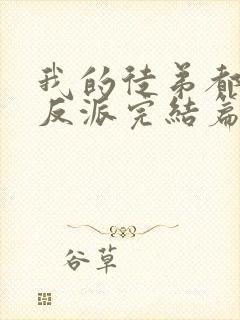 我的徒弟都
反派完结篇
谷草